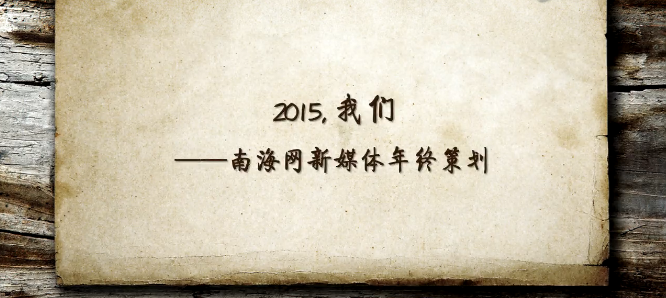 2015, 我们
——南海网新媒体年终策划